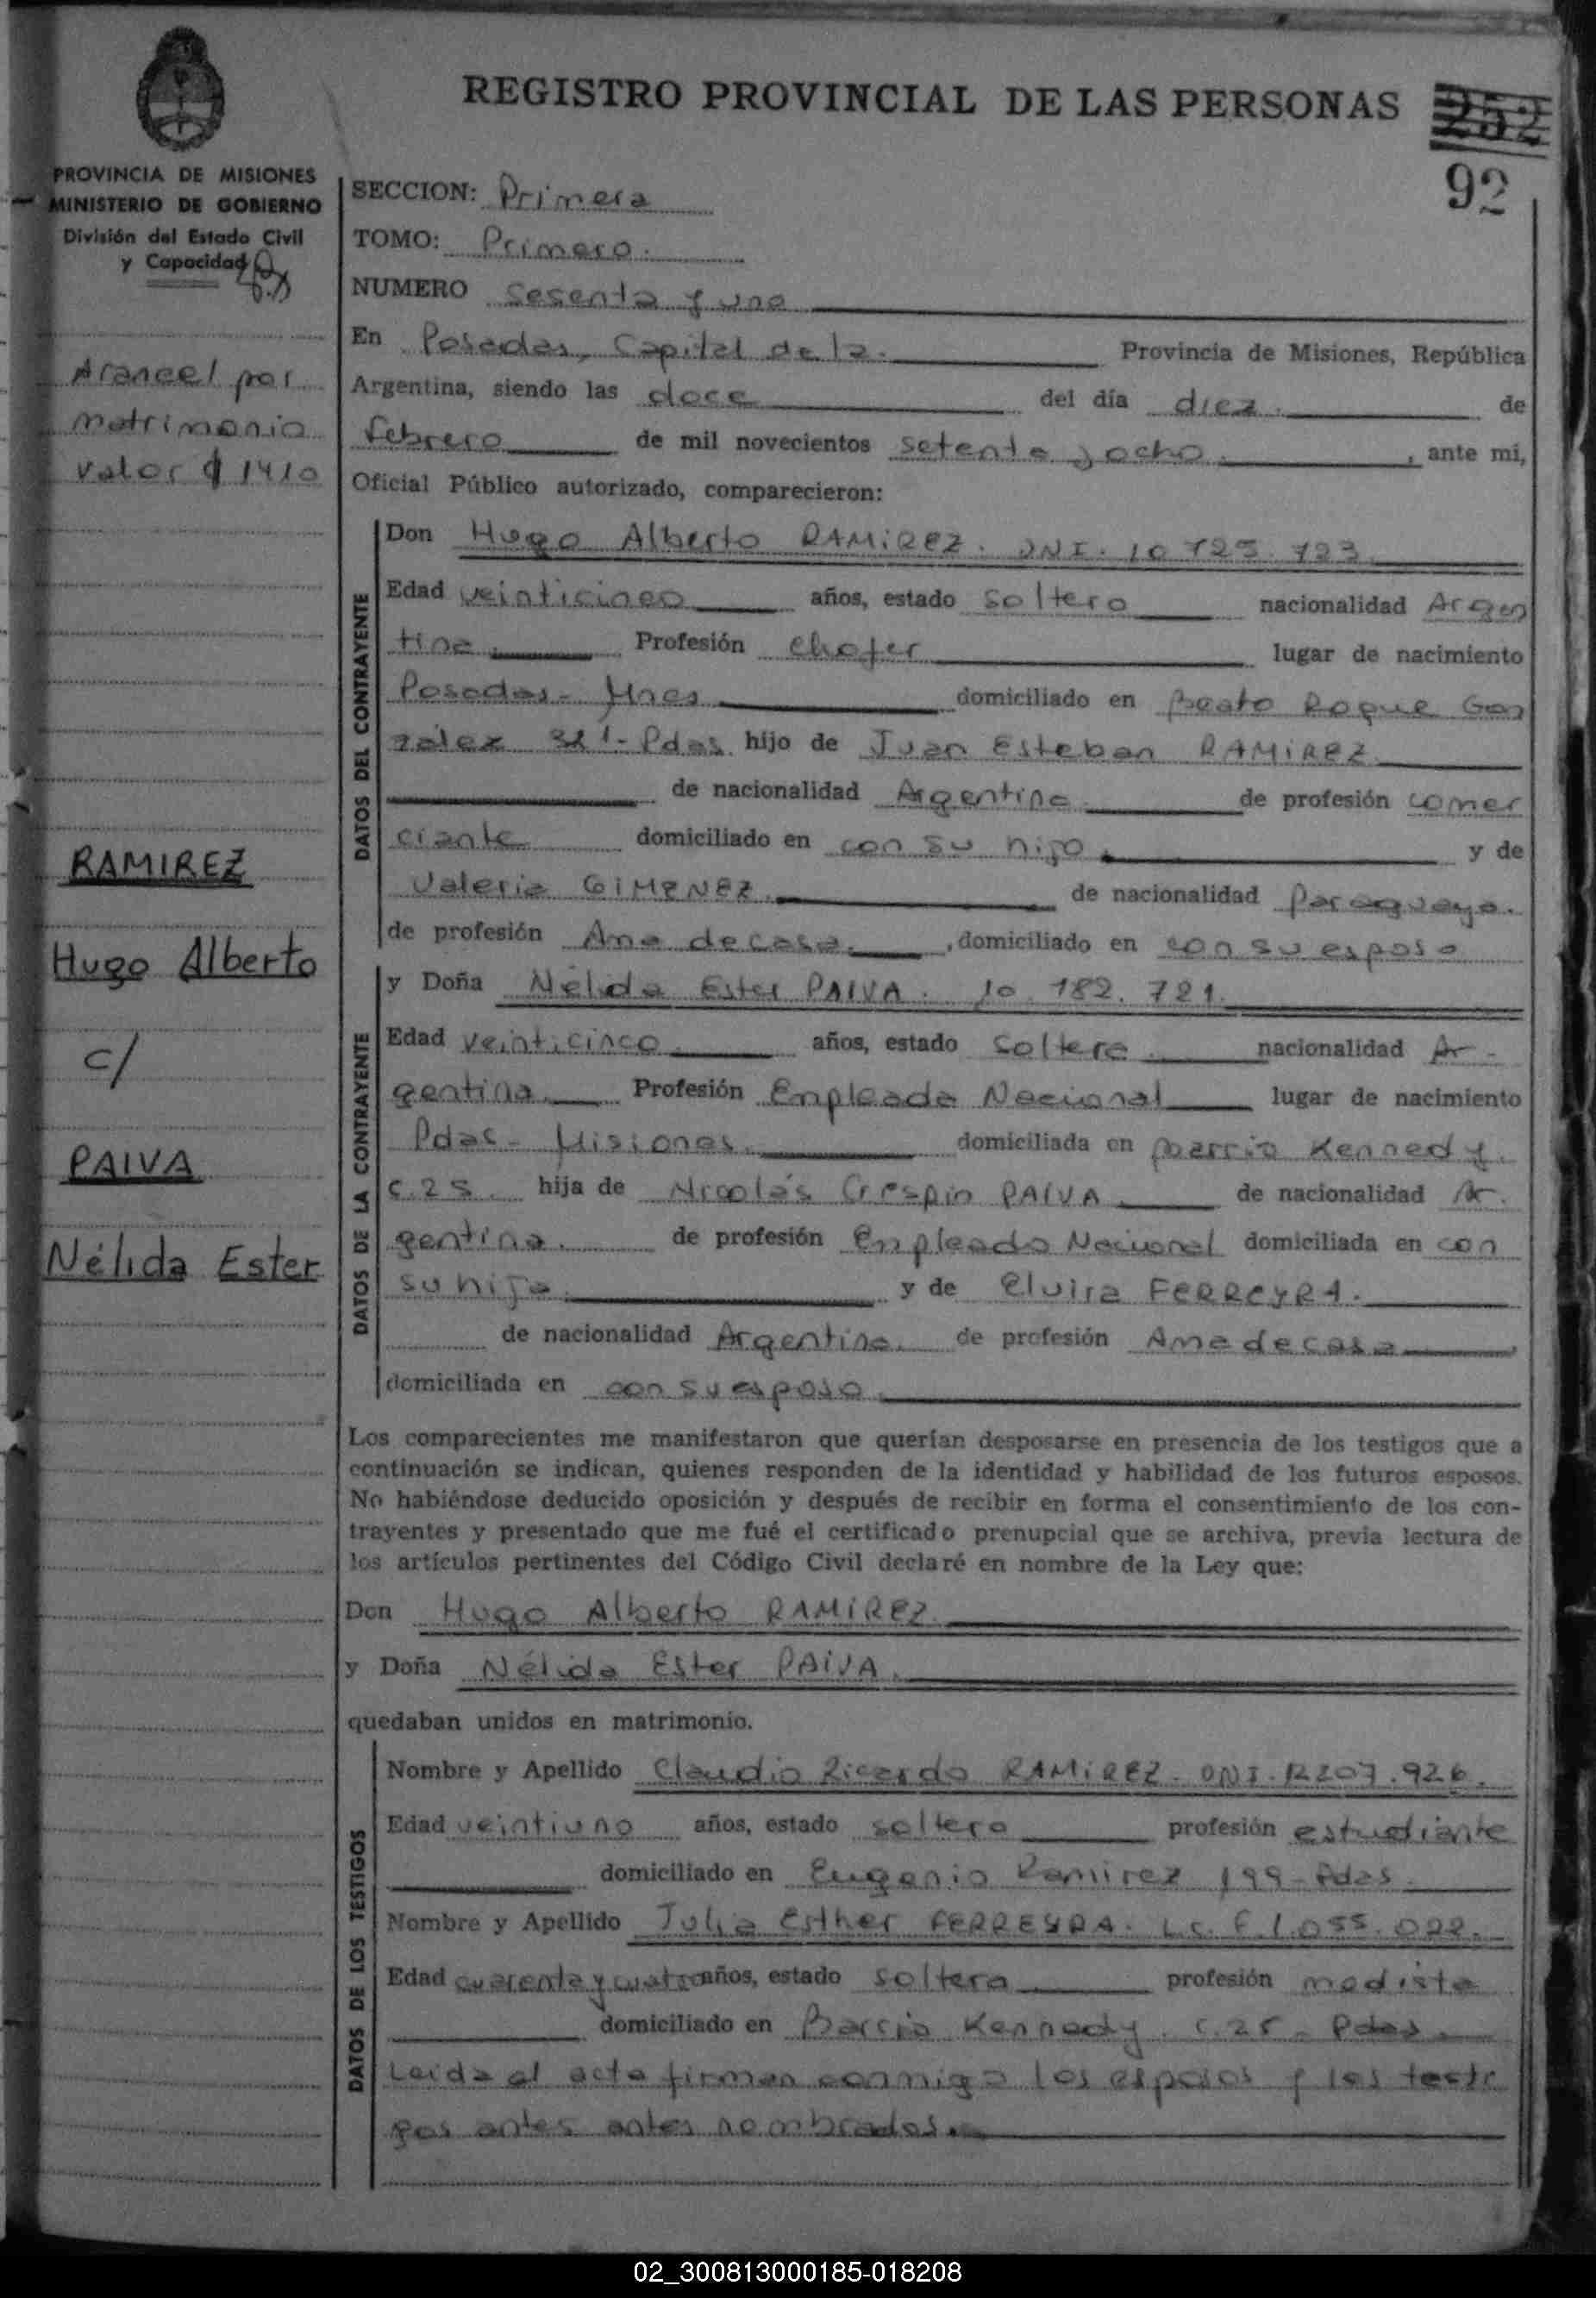 REGISTRO PROVINCIAL DE LAS PERSONAS
252
92
PROVINCIA DE MISIONES
MINISTERIO DE GOBIERNO
División del Estado Civil
y Capacidad
Arancel por
matrimonio
valor $ 1410
RAMIREZ
Hugo Alberto
c/
PAIVA
Nélida Ester
SECCION: Primera
TOMO: Primero.
NUMERO sesenta y uno
En Posadas, Capital de la. Provincia de Misiones, República
Argentina, siendo las doce del día diez. de
febrero de mil novecientos setenta y ocho. , ante mi,
Oficial Público autorizado, comparecieron:
DATOS DEL CONTRAYENTE
Don Hugo Alberto RAMIREZ. DNI. 10.725.723
Edad veinticinco años, estado soltero nacionalidad Argen
tina. Profesión chofer lugar de nacimiento
Posadas- Mnes domiciliado en Beato Roque Gon
zalez - Pdas. hijo de Juan Esteban RAMIREZ
de nacionalidad Argentina. de profesión comer
ciante domiciliado en con su hijo. y de
Valeria GIMENEZ. de nacionalidad Paraguaya.
de profesión Ama de casa. , domiciliado en con su esposo
DATOS DE LA CONTRAYENTE
y Doña Nélida Ester PAIVA. 10.182.721.
Edad veinticinco. años, estado soltera. nacionalidad Ar-
gentina. Profesión Empleada Nacional lugar de nacimiento
Pdas- Misiones. domiciliada en barrio Kennedy.
c.25. hija de Nicolás Crespin PAIVA. de nacionalidad Ar.
gentina. de profesión Empleado Nacional domiciliada en con
su hija. y de Elvira FERREYRA.
de nacionalidad Argentina. de profesión Ama de casa
domiciliada en con su esposo.
Los comparecientes me manifestaron que querían desposarse en presencia de los testigos que a
continuación se indican, quienes responden de la identidad y habilidad de los futuros esposos.
No habiéndose deducido oposición y después de recibir en forma el consentimiento de los con-
trayentes y presentado que me fué el certificado prenupcial que se archiva, previa lectura de
los artículos pertinentes del Código Civil declaré en nombre de la Ley que:
Don Hugo Alberto RAMIREZ.
y Doña Nélida Ester PAIVA.
quedaban unidos en matrimonio.
DATOS DE LOS TESTIGOS
Nombre y Apellido Claudio Ricardo RAMIREZ. DNI. 12207.926.
Edad veintiuno años, estado soltero profesión estudiante
domiciliado en Eugenio Ramirez 199-Pdas.
Nombre y Apellido Julia Esther FERREYRA. L.C. F.1.055.022.
Edad cuarenta y cuatro años, estado soltera profesión modista
domiciliado en Barrio Kennedy. c.25- Pdas.
Leida el acta firman conmigo los esposos y los testi
gos antes antes nombrados.
02_300813000185-018208